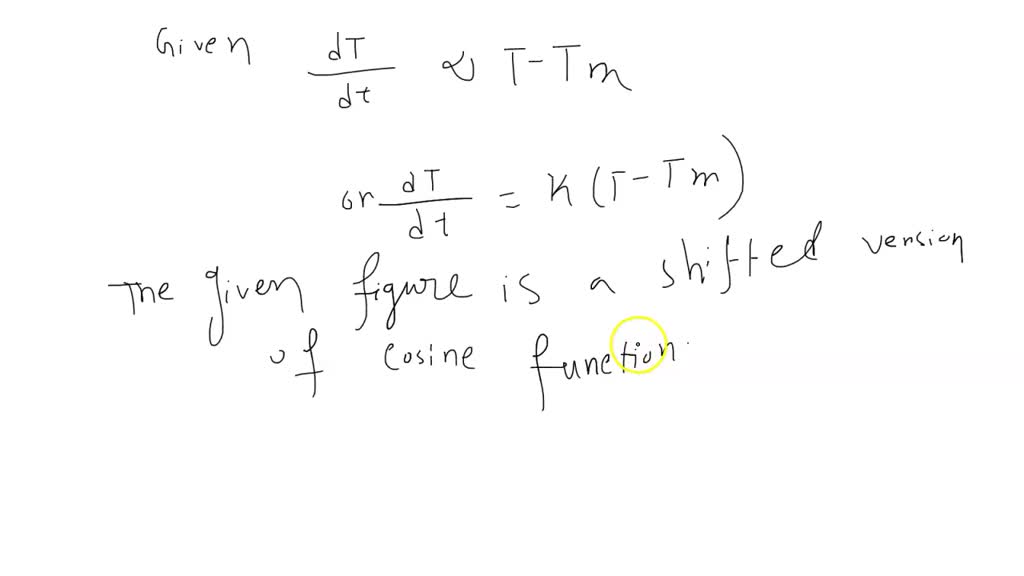 Given dT/dt ∝ T-Tm
or dT/dt = K(T-Tm)
The given figure is a shifted version
of cosine function.